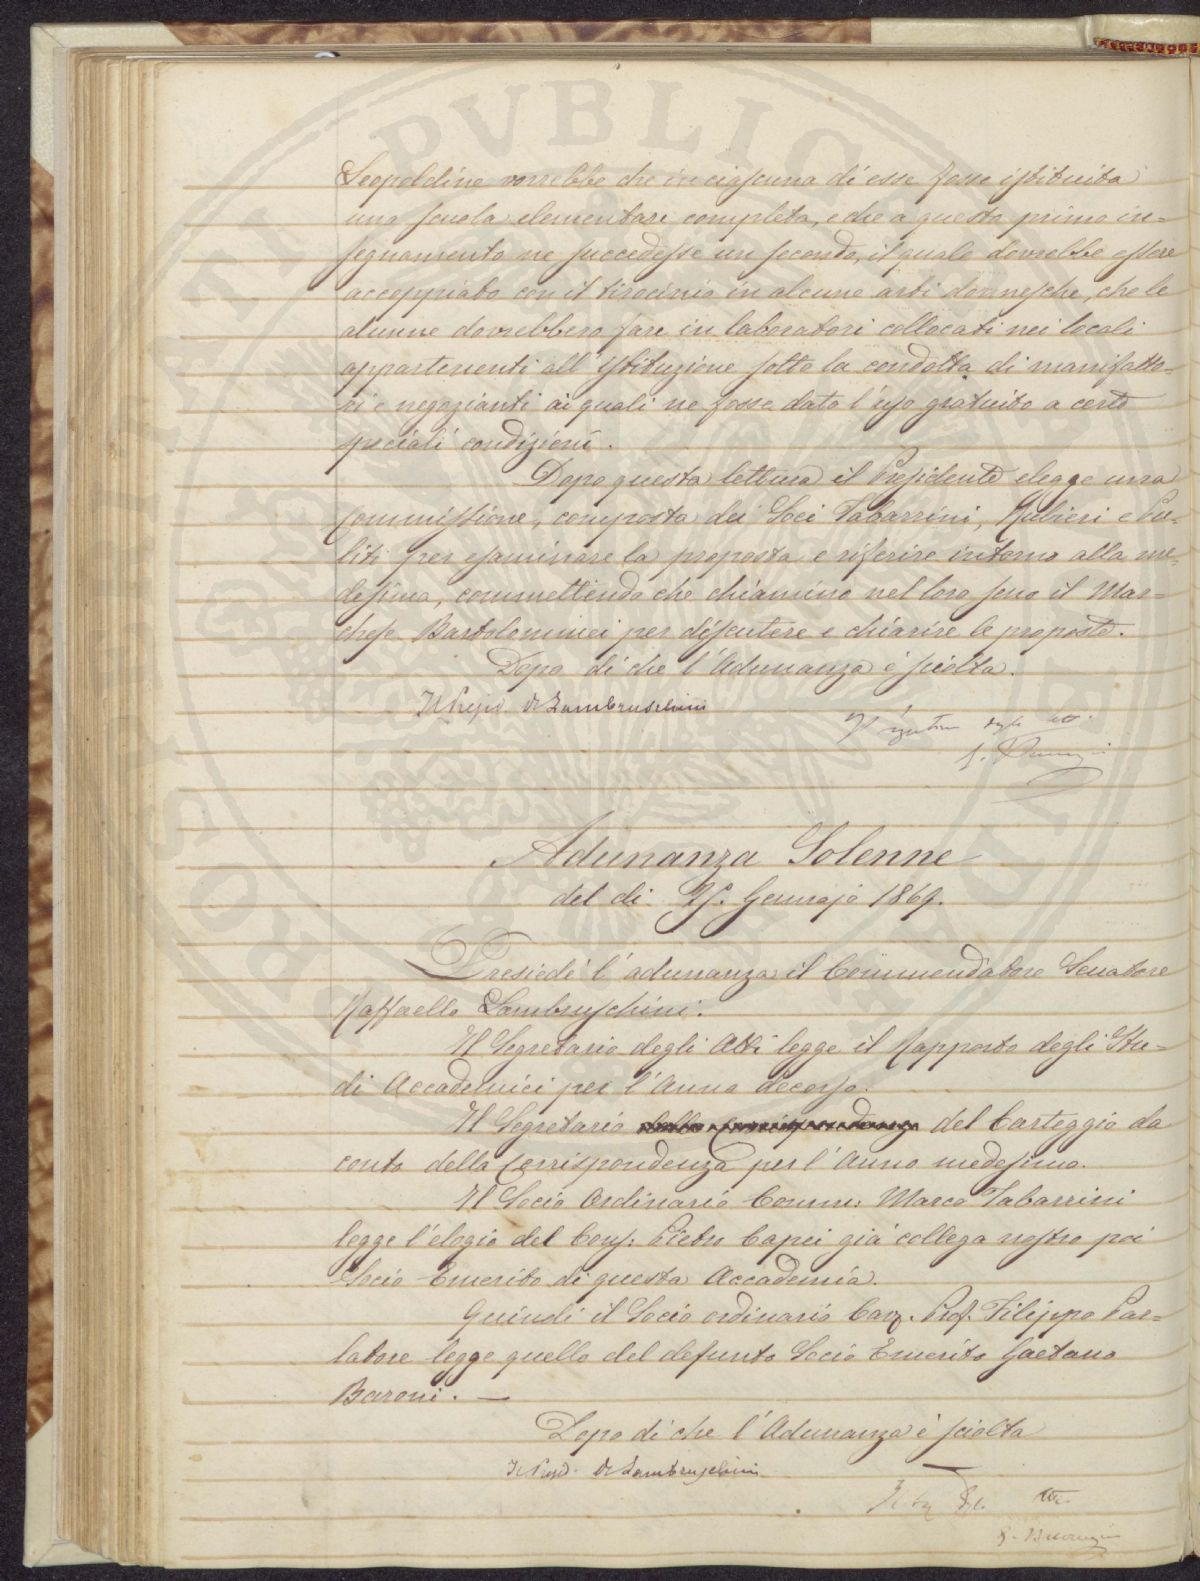 Leopoldine vorrebbe che in ciascuna di esse fosse istituita
una scuola elementare completa, e che a questo primo in=
segnamento ne succedesse un secondo, il quale dovrebbe essere
accoppiato con il tirocinio in alcune arti donnesche, che le
alunne dovrebbero fare in laboratori collocati nei locali
appartenenti all'Istituzione sotto la condotta di manifatto=
ri e negozianti ai quali ne fosse dato l'uso gratuito a certe
speciali condizioni.
Dopo questa lettura il Presidente elegge una
Commissione, composta dei Soci Tabarrini, Rubieri e Pu=
liti per esaminare la proposta e riferire intorno alla me=
desima, commettendo che chiamino nel loro seno il Mar=
chese Bartolommei per discutere e chiarire le proposte.
Dopo di che l'Adunanza è sciolta.
Il Presid. R Lambruschini
Il degli Atti
Adunanza Solenne
del dì Gennajo 1869.
Presiede l'adunanza il Commendatore Senatore
Raffaello Lambruschini.
Il Segretario degli Atti legge il Rapporto degli Stu=
di Accademici per l'Anno decorso.
Il Segretario della Corrispondenza del Carteggio da
conto della Corrispondenza per l'Anno medesimo.
Il Socio Ordinario Comm: Marco Tabarrini
legge l'elogio del Cons: Pietro Capei già collega nostro poi
Socio Emerito di questa Accademia.
Quindi il Socio ordinario Cav. Prof. Filippo Par=
latore legge quello del defunto Socio Emerito Gaetano
Baroni. —
Dopo di che l'Adunanza è sciolta
Il Presid. R Lambruschini